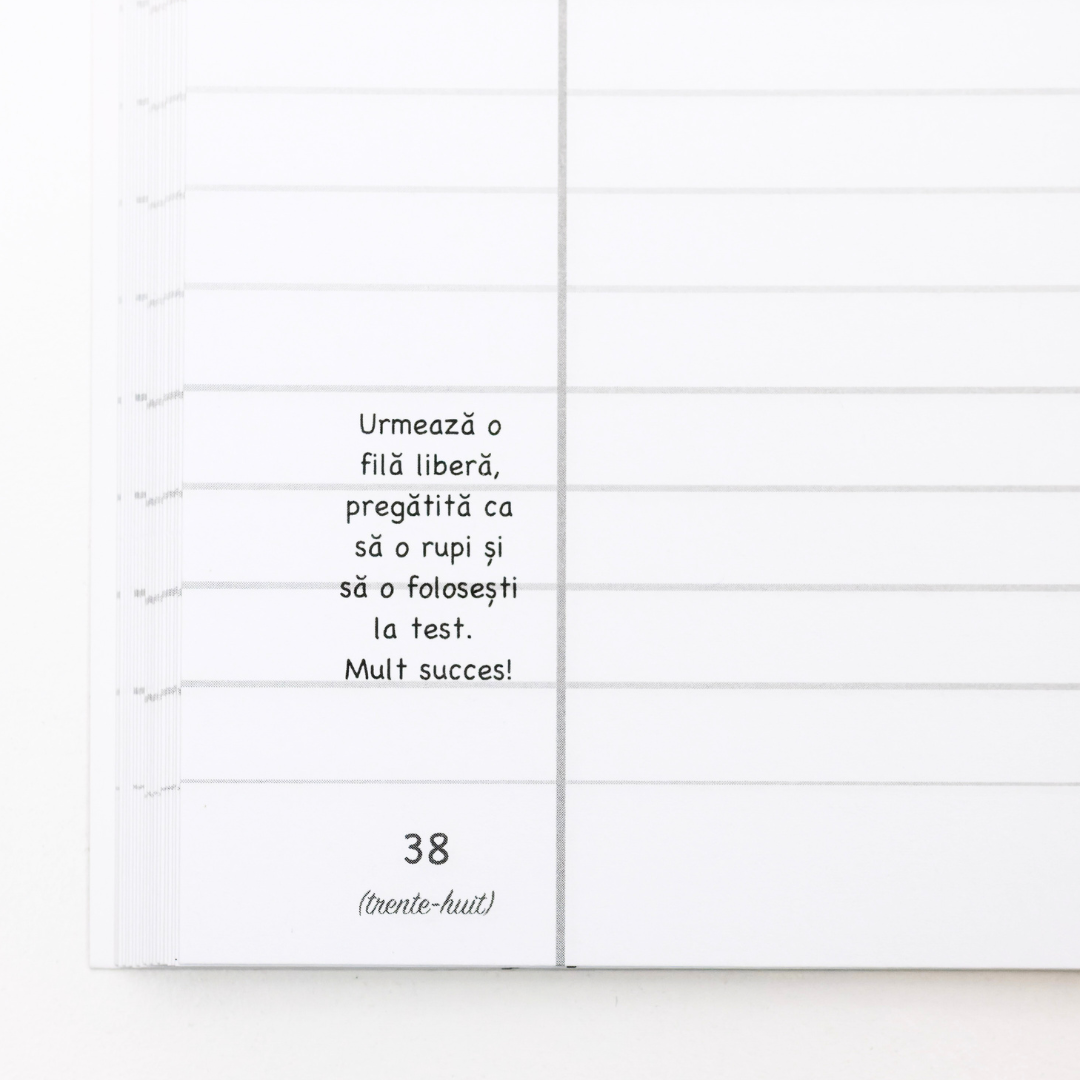 Urmează o
filă liberă,
pregătită ca
să o rupi și
să o folosești
la test.
Mult succes!
38
(trente-huit)